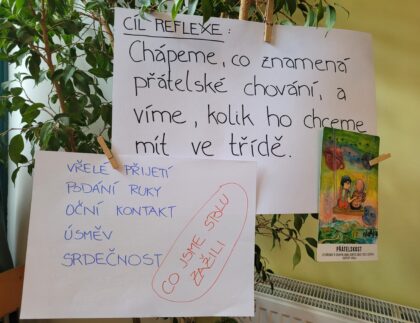 CÍL REFLEXE:
Chápeme, co znamená
přátelské chování, a
víme, kolik ho chceme
mít ve třídě.
VŘELÉ PŘIJETÍ
PODÁNÍ RUKY
OČNÍ KONTAKT
ÚSMĚV
SRDEČNOST
CO JSME SPOLU
ZAŽILI
PŘÁTELSKOST